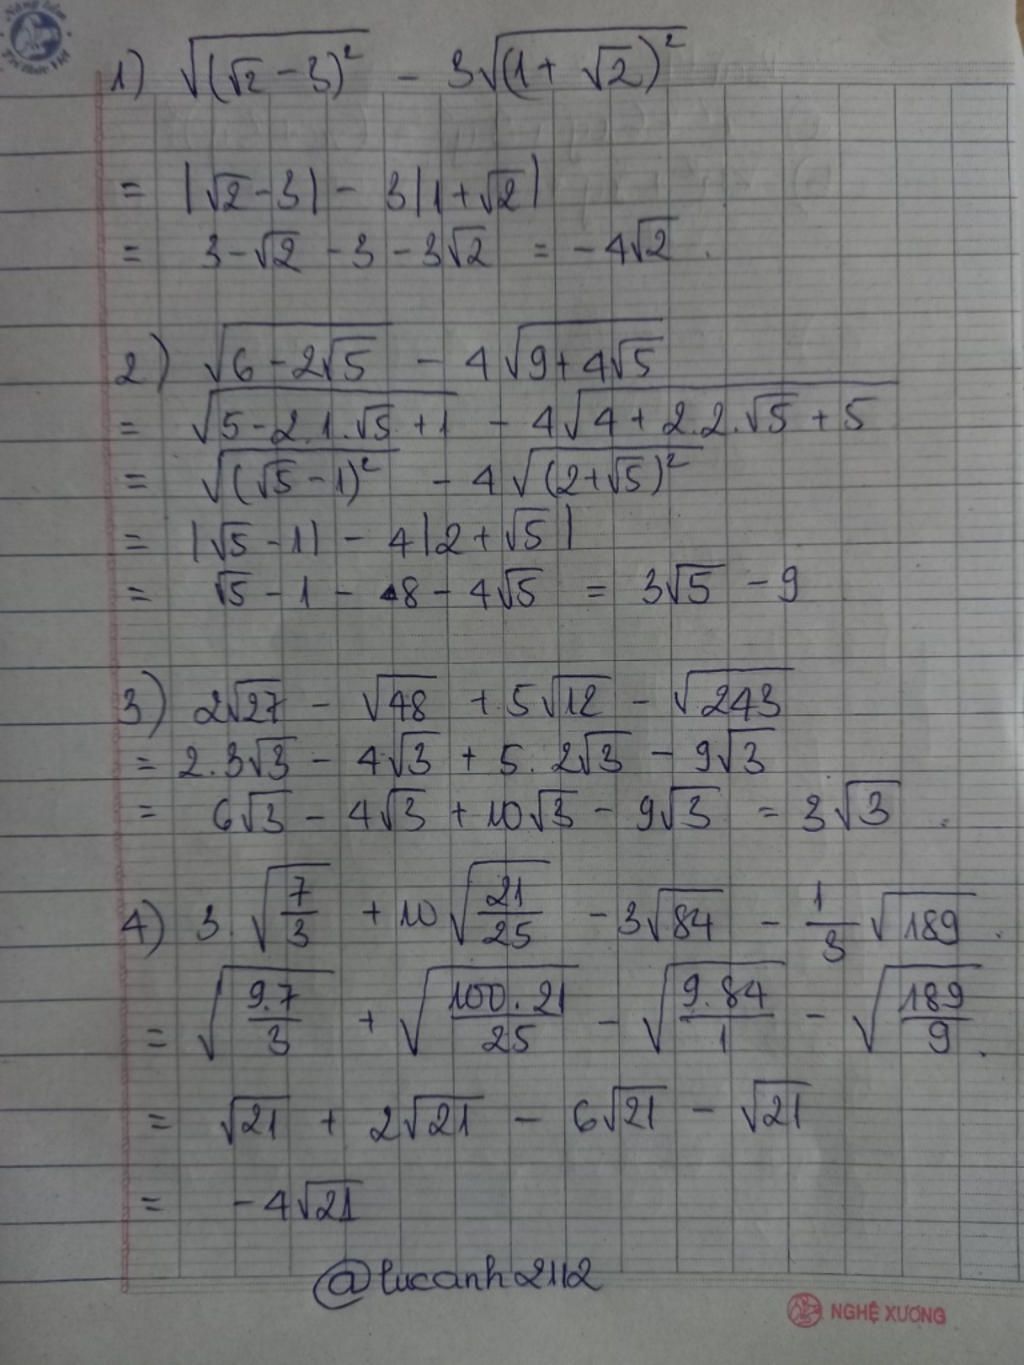 1) √(√2 − 3)² − 3√(1 + √2)²
= |√2 − 3| − 3|1 + √2|
= 3 − √2 − 3 − 3√2 = −4√2.
2) √(6 − 2√5) − 4√(9 + 4√5)
= √(5 − 2.1.√5 + 1) − 4√(4 + 2.2.√5 + 5)
= √(√5 − 1)² − 4√(2 + √5)²
= |√5 − 1| − 4|2 + √5|
= √5 − 1 − 8 − 4√5 = 3√5 − 9
3) 2√27 − √48 + 5√12 − √243
= 2.3√3 − 4√3 + 5.2√3 − 9√3
= 6√3 − 4√3 + 10√3 − 9√3 = 3√3.
4) 3.√(7/3) + 10√(21/25) − 3√84 − 1/3 √189.
= √(9.7/3) + √(100.21/25) − √(9.84/1) − √(189/9).
= √21 + 2√21 − 6√21 − √21
= −4√21
@lucanh2112
NGHỆ XƯƠNG